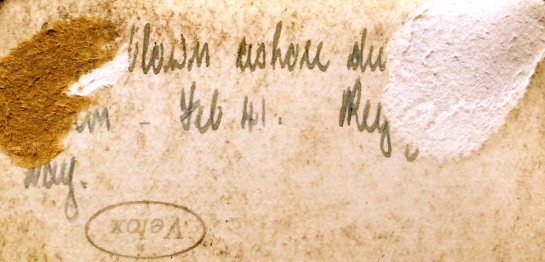 blown ashore du
m - Feb 41. Meg
way.
Velox